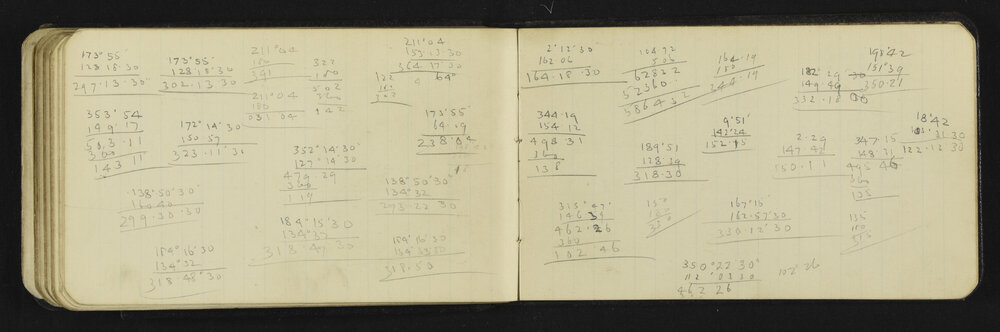 173°55'
128·18·30
297·13·30
173°55'
128·18·30
302·13·30
211°04
180
391
211·04
180
031 04
322
180
502
360
142
211°04
153·13·30
364·17·30
173°55'
64·19
238·04
353°54
149 17
503·11
360
143 11
172°14'30
150 57
323·11'31
352°14'30
127°14'30
479·29
360
119
138°50'30
160 40
299·30·30
138°50'30
134°32
273·22 30
184°15'30
134°32
318·47·30
184°16'30
134°32
318 48°30
184°16'30
318·50
2°12'30
162 06
164·18·30
10472
506
62832
52360
586432
164·19
180
344·19
182°29
149 49
332·18
198°42
151°39
350·21
344·19
154 12
498 31
360
138
189°51
128 39
318·30
9°51'
142°24
152·15
2·29
147·42
150·11
347·15
148 31
495 46
360
135
18°42
31 30
122·13 30
313°47'
146 39
462·26
360
102·46
150
180
330
167°15'
162·57'30
330·12'30
135
180
350°22'30"
112°03 30
462 26
102°26